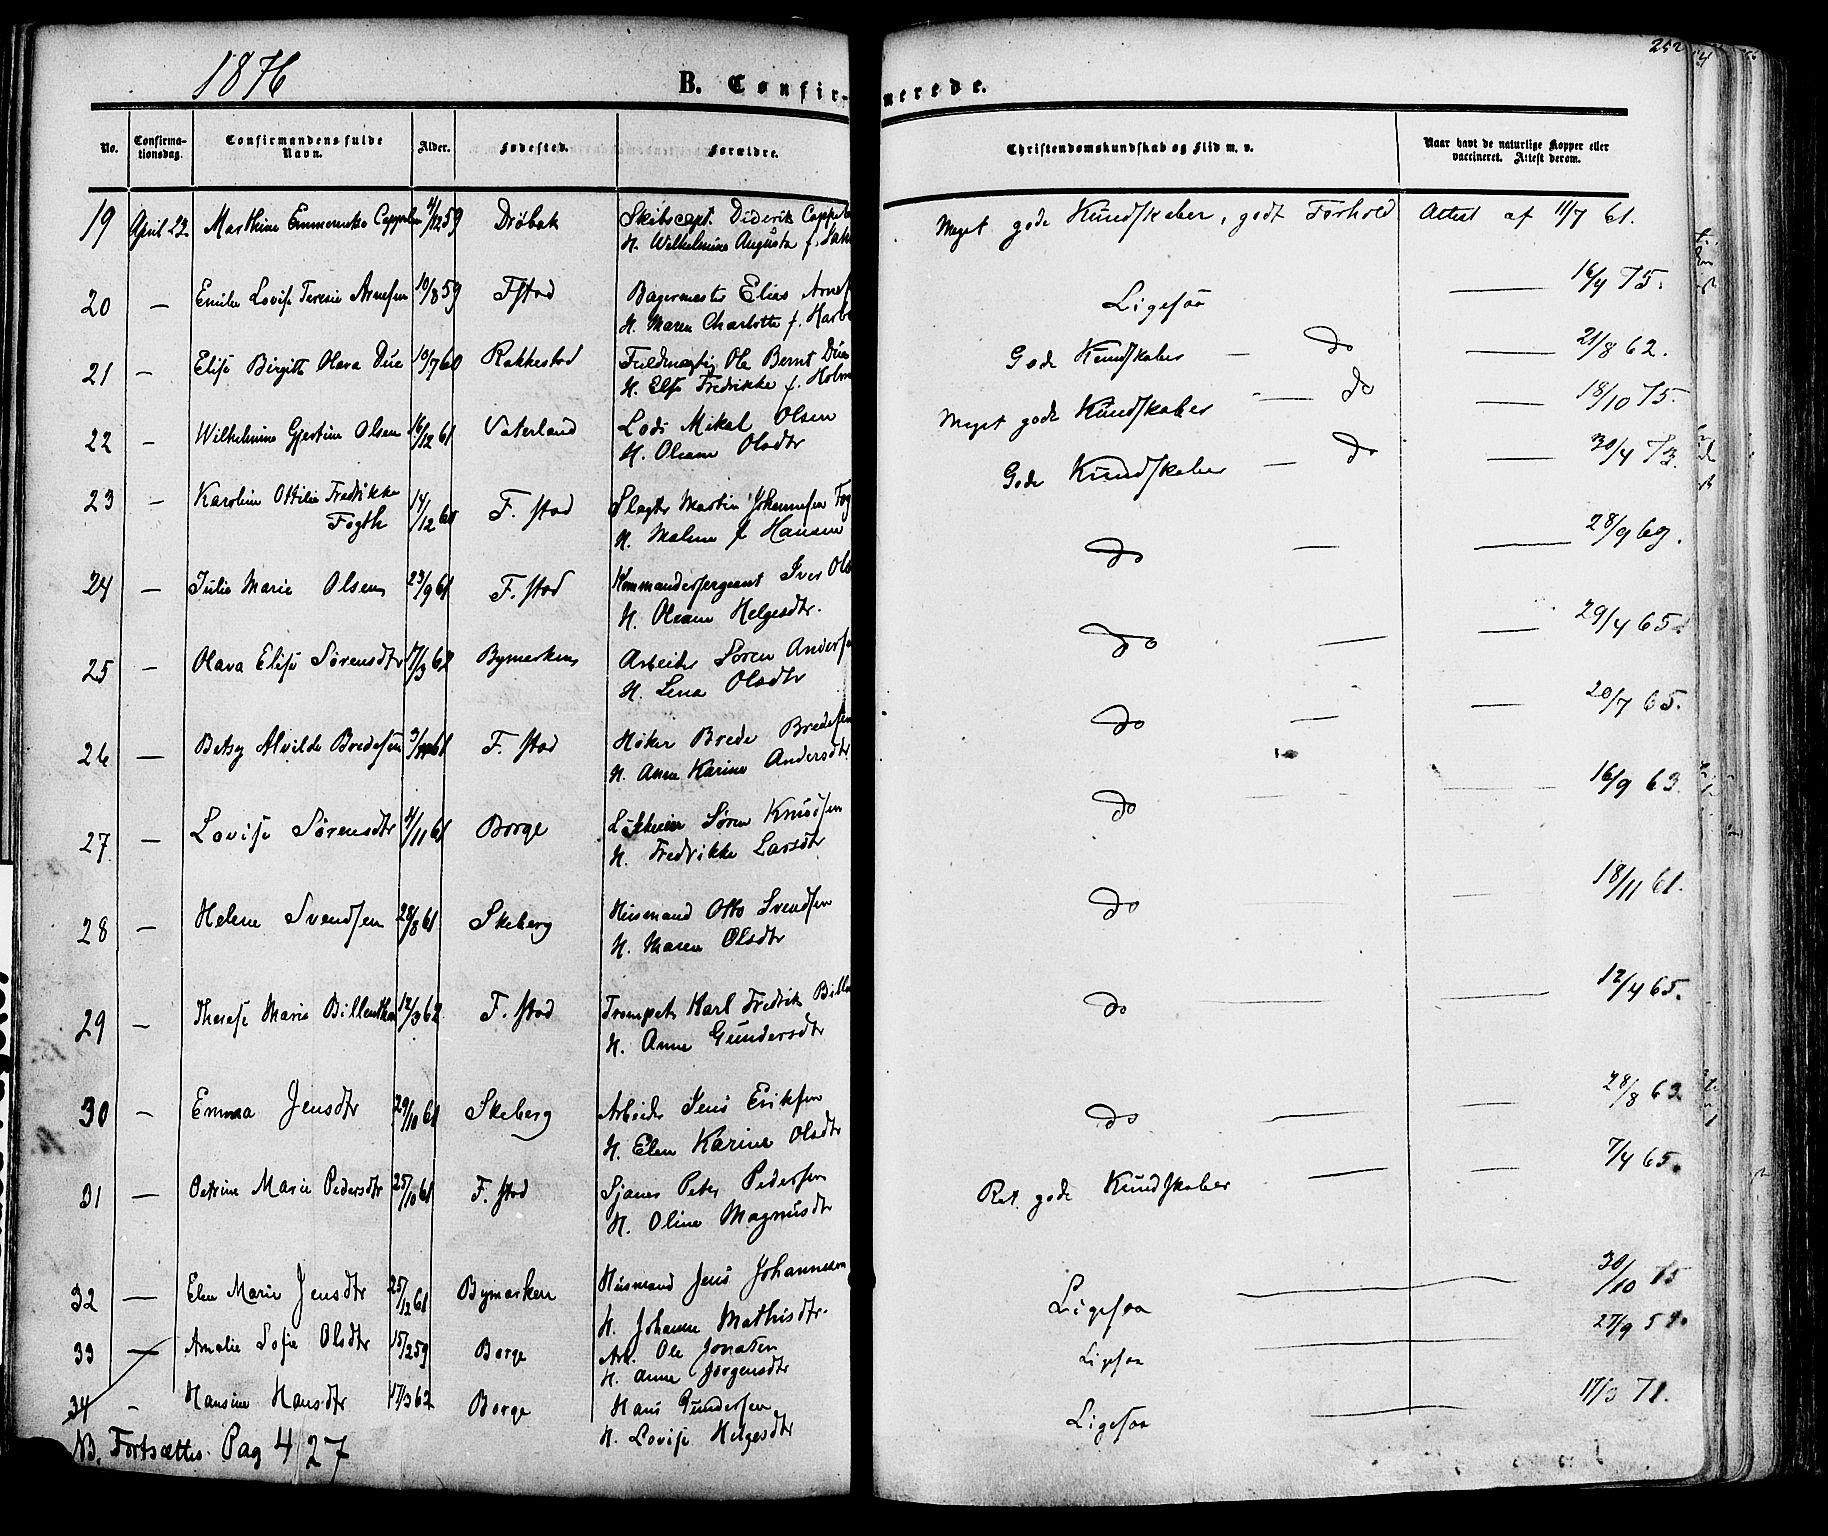 1876
B. Confir- merede.
252
No.
Confirmationsdag.
Confirmandens fulde Navn.
Alder.
Fødested.
Forældre.
Christendomskundskab og Flid m. v.
Naar havt de naturlige Kopper eller vaccineret. Attest derom.
19 April 23 Marthine Emmerentse 4/12 59 Drøbak Skibscapt. Diderik Meget gode Kundskaber, godt Forhold Attest af 11/7 61.
H. Wilhelmine Augusta f.
20 — Emilie Lovise Teresie Arnesen 10/8 59 Fstad Bagermester Elias Ligesaa — 16/4 75.
H. Maren Charlotte f.
21 — Elise Birgitte Olava Due 10/7 60 Rakkestad Fuldmægtig Ole Bernt Due Gode Kundskaber — do — 21/8 62.
H. Else Fredrikke f. Holm
22 — Wilhelmine Gjertine Olsen 16/12 61 Vaterland Lods Mikal Olsen Meget gode Kundskaber — do — 18/10 75.
H. Oleane Olsdtr
23 — Karoline Ottilie Fredrikke 14/12 60 F. stad Slagter Martin Johannesen Fog Gode Kundskaber — do — 30/4 73.
Fogth H. Malene f Hansen
24 — Julie Marie Olsen 23/9 61 F. stad Kommandersergeant Iver Ols do — — 28/9 69.
H. Oleane Helgesdtr.
25 — Olava Elise Sørensdtr 17/3 62 Bymarken Arbeider Søren Anders do — — 29/4 65.
H. Lena Olsdtr
26 — Betsy Alvilde Bredesen F. stad Høker Brede Bredesen do — — 20/7 65.
H. Anne Karine Andersdtr
27 — Lovise Sørensdtr 4/11 61 Borge Søren Knudsen do — — 16/9 63.
H. Fredrikke Larsdtr
28 — Helene Svendsen 28/8 61 Skeberg Husmand Otto Svendsen do — — 18/11 61.
H. Maren Olsdtr
29 — Therese Marie 12/3 62 F. stad Trompeter Karl Fredrik do — — 12/4 65.
H. Anne Gundersdtr
30 — Emma Jensdtr 29/10 61 Skeberg Arbeider Jens Eriksen do — — 28/8 63
H. Elen Karine Olsdtr
31 — Petrine Marie Pedersdtr 25/10 61 F. stad Sjauer Peter Pedersen Ret gode Kundskaber — — 7/4 65.
H. Oline Magnusdtr
32 — Elen Marie Jensdtr 25/12 61 Bymarken Husmand Jens Johannesen Ligesaa — 30/10 75
H. Johanne Mathisdtr.
33 — Amalie Sofie Olsdtr 15/2 59 Borge Arb. Ole Ligesaa — 27/9 59.
H. Anne Jørgensdtr
34 - Hansine Hansdtr 17/3 62 Borge Hans Gundersen Ligesaa — 17/3 71.
H. Lovise Helgesdtr
NB. Fortsættes Pag 427